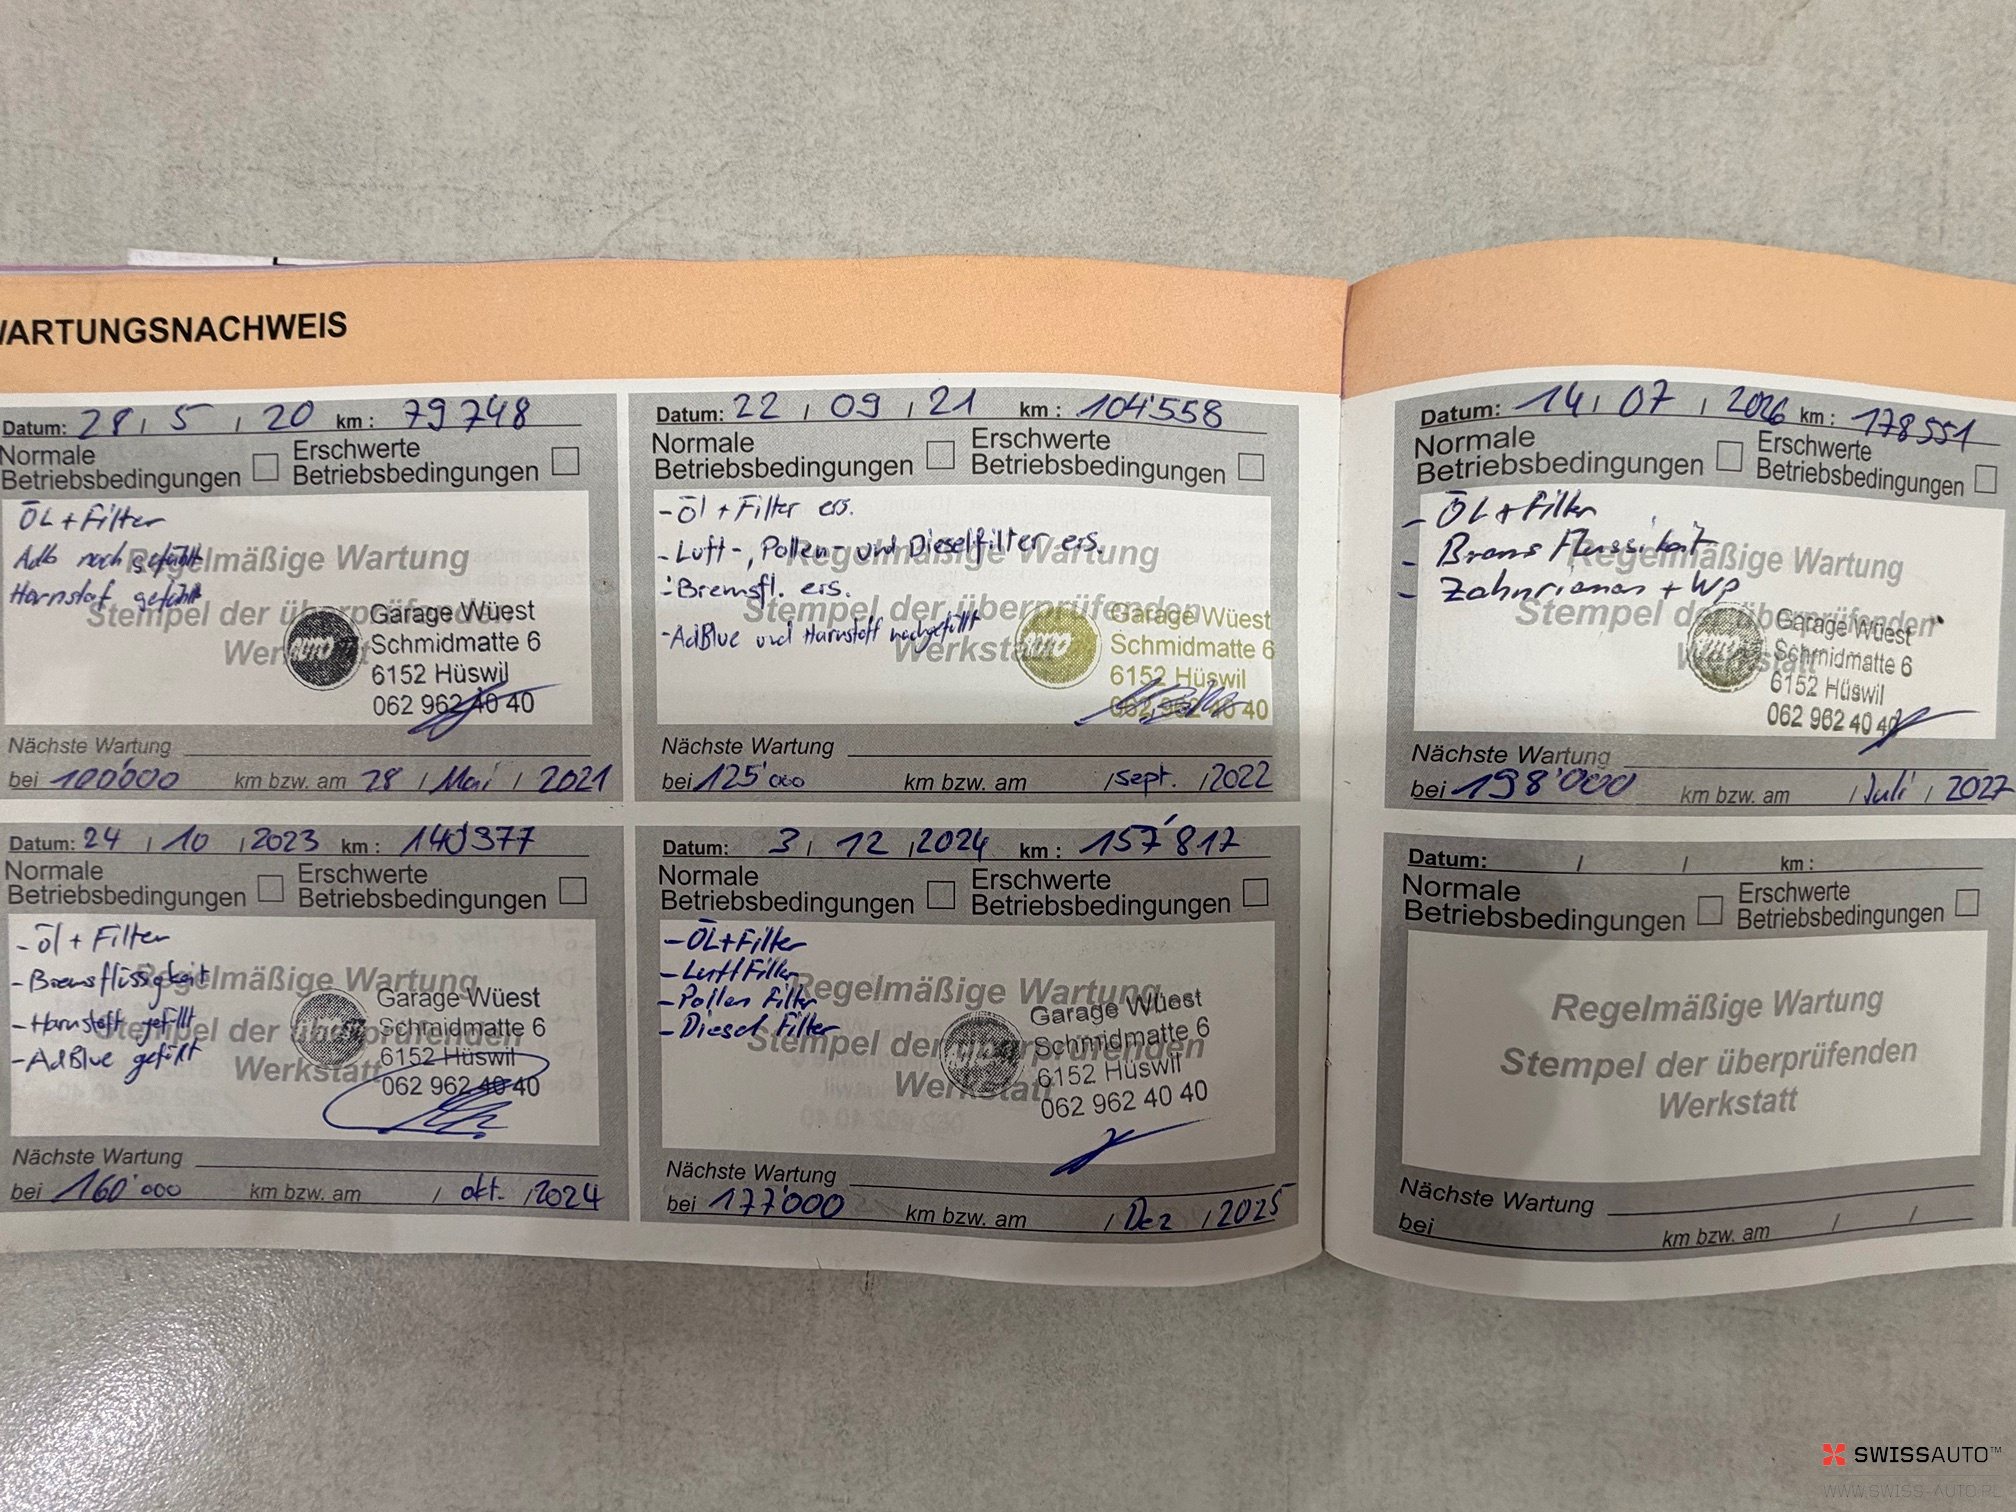 WARTUNGSNACHWEIS
Datum: 28 / 5 / 20 km : 79748
Normale Betriebsbedingungen
Erschwerte Betriebsbedingungen
ÖL + Filter
Regelmäßige Wartung
Stempel der überprüfenden
Garage Wüest
Schmidmatte 6
6152 Hüswil
062 962 40 40
Nächste Wartung
bei 100'000 km bzw. am 28 / Mai / 2021
Datum: 22 / 09 / 21 km : 104'558
Normale Betriebsbedingungen
Erschwerte Betriebsbedingungen
- Öl + Filter ers.
- Luft-, Pollen- und Dieselfilter ers.
- Bremsfl. ers.
- AdBlue und Harnstoff nachgefüllt
Regelmäßige Wartung
Stempel der überprüfenden
Werkstatt
Garage Wüest
Schmidmatte 6
6152 Hüswil
062 962 40 40
Nächste Wartung
bei 125'000 km bzw. am / Sept. / 2022
Datum: 24 / 10 / 2023 km : 140'377
Normale Betriebsbedingungen
Erschwerte Betriebsbedingungen
- Öl + Filter
- Bremsflüssigkeit
- Harnstoff gefüllt
- AdBlue gefüllt
Regelmäßige Wartung
Stempel der überprüfenden
Werkstatt
Garage Wüest
Schmidmatte 6
6152 Hüswil
062 962 40 40
Nächste Wartung
bei 160'000 km bzw. am / Okt. / 2024
Datum: 3 / 12 / 2024 km : 157'817
Normale Betriebsbedingungen
Erschwerte Betriebsbedingungen
- ÖL + Filter
- Luft Filter
- Pollen Filter
- Diesel Filter
Regelmäßige Wartung
Stempel der überprüfenden
Werkstatt
Garage Wüest
Schmidmatte 6
6152 Hüswil
062 962 40 40
Nächste Wartung
bei 177'000 km bzw. am / Dez / 2025
Datum: 14 / 07 / 2026 km : 178551
Normale Betriebsbedingungen
Erschwerte Betriebsbedingungen
- ÖL + Filter
- Zahnriemen + WP
Regelmäßige Wartung
Stempel der überprüfenden
Garage Wüest
Schmidmatte 6
6152 Hüswil
062 962 40 40
Nächste Wartung
bei 198'000 km bzw. am / Juli / 2027
Datum: / / km :
Normale Betriebsbedingungen
Erschwerte Betriebsbedingungen
Regelmäßige Wartung
Stempel der überprüfenden
Werkstatt
Nächste Wartung
bei km bzw. am / /
SWISSAUTO™
WWW.SWISS-AUTO.PL